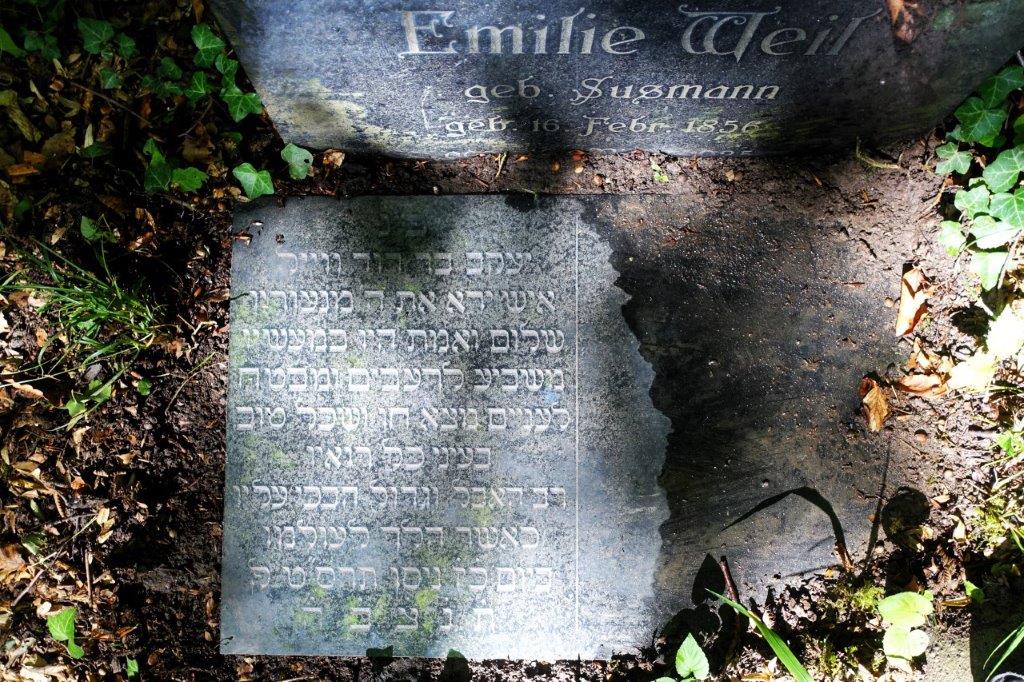 Emilie Weil
geb. Susmann
geb. 16. Febr. 1856
פ נ
יעקב בר דוד ווייל
איש ירא את ה מנעוריו
שלום ואמת היו במעשיו
משביע לרעבים ומבטח
לעניים מצא חן ושכל טוב
בעיני כל רואיו
רב האבל וגדול הבכי עליו
כאשר הלך לעולמו
ביום כז ניסן תרס״ט ל
ת נ צ ב ה